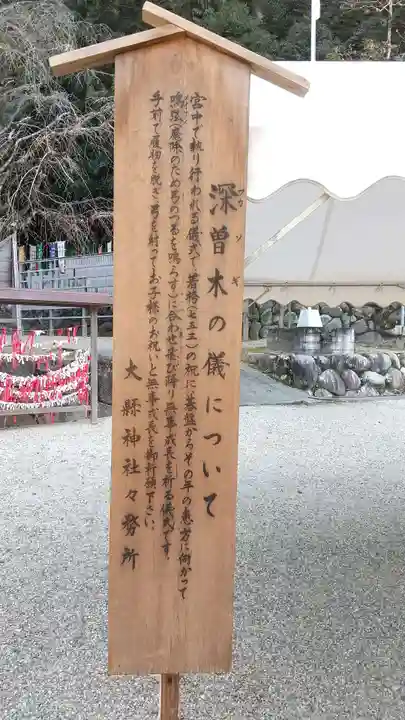 深曽木の儀について
フカソギ
宮中で執り行われる儀式で、着袴(七五三)の祝に、碁盤からその年の恵方に向かって
鳴弦(魔除のため弓のつるを鳴らす)に合わせ飛び降り無事成長を祈る儀式です。
手前で履物を脱ぎ、弓を射ってお子様のお祝いと無事成長を御祈願下さい。
大縣神社々務所